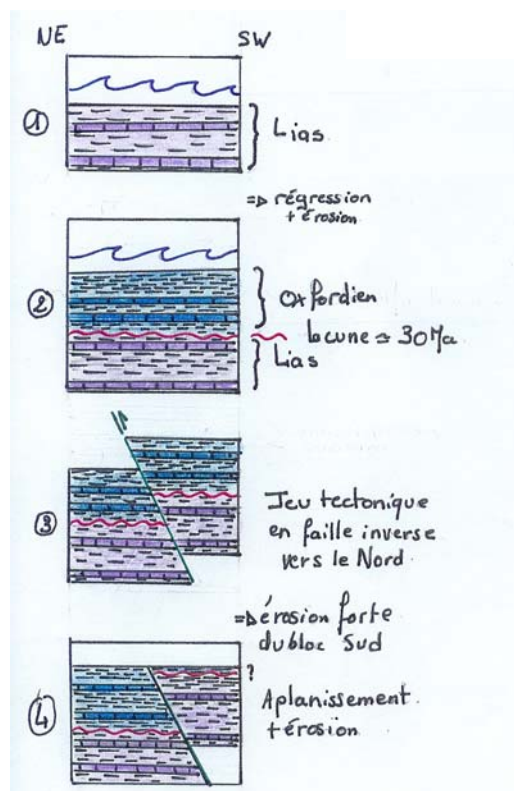 NE SW
①
Lias
=> régression
+ érosion
②
Oxfordien
lacune ≃ 30 Ma
Lias
③
Jeu tectonique
en faille inverse
vers le Nord
=> érosion forte
du bloc Sud
?
④
Aplanissement
+ érosion